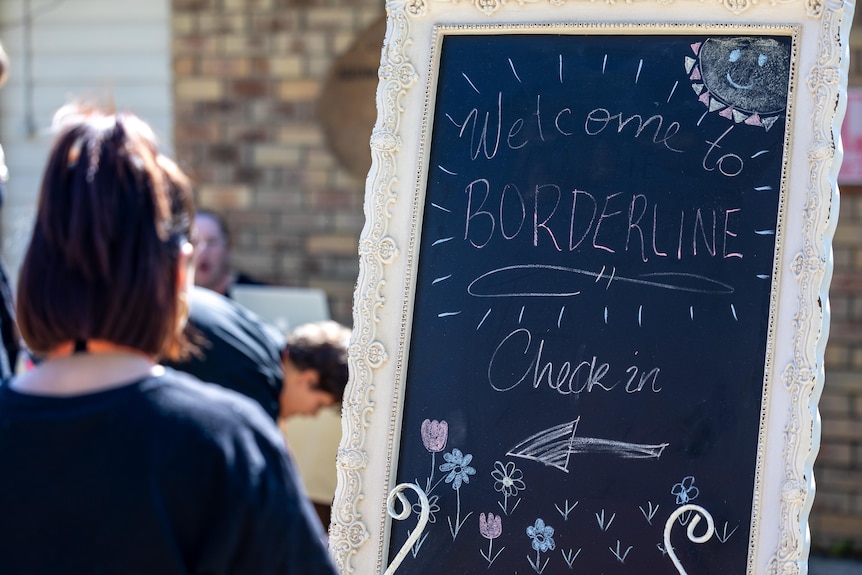 Welcome to
BORDERLINE
Check in